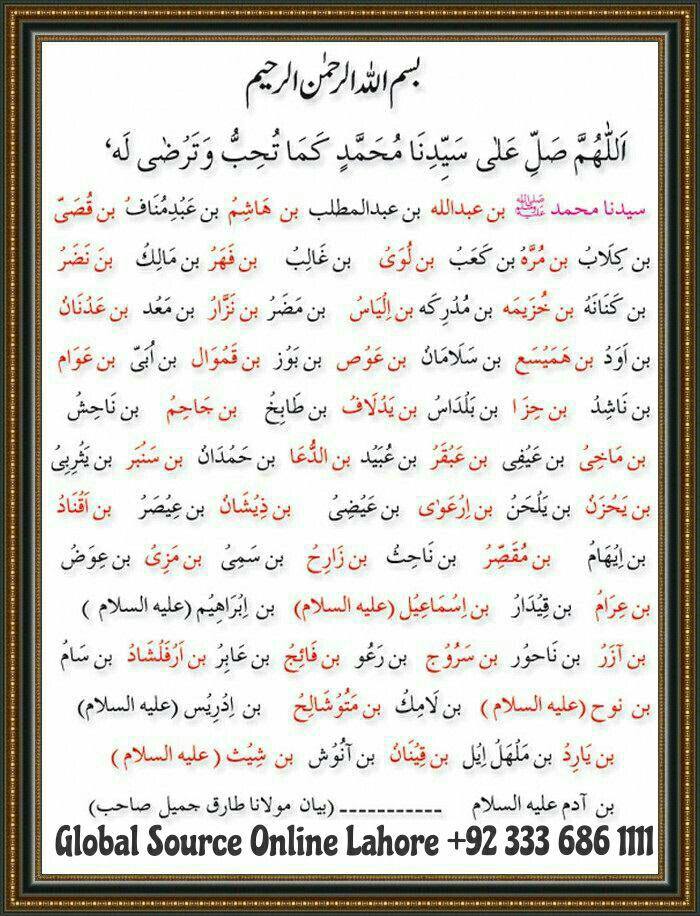 بسم الله الرحمٰن الرحیم
اَللّٰهُمَّ صَلِّ عَلٰى سَيِّدِنَا مُحَمَّدٍ كَمَا تُحِبُّ وَتَرْضٰى لَه‘
سیدنا محمد ﷺ بن عبدالله بن عبدالمطلب بن هَاشِمُ بن عَبدِمُنَافُ بن قُصَیّ
بن کِلَابُ بن مُرَّه بن کَعَبُ بن لُوَیُ بن غَالِبُ بن فَهَرُ بن مَالِكُ بن نَضَرُ
بن کَنَانَهُ بن خُزَیمَه بن مُدُرِکَه بن اِلْیَاسُ بن مَضَرُ بن نَزَّارُ بن مَعَد بن عَدُنَانُ
بن اَوَدُ بن هَمَیُسَع بن سَلَامَانُ بن عَوُص بن بَوُز بن قَمُوَال بن اُبَیّ بن عَوَام
بن نَاشِدُ بن حِزَا بن بَلُدَاسُ بن یَدُلَافُ بن طَابِخُ بن جَاحِمُ بن نَاحِشُ
بن مَاخِیُ بن عَیُفِی بن عَبُقَرُ بن عُبَیُد بن الدُّعَا بن حَمُدَانُ بن سَنُبَر بن یَثُرِبِیُ
بن یَحُزَنُ بن یَلُحَنُ بن اِرُعَوٰی بن عَیُضِیُ بن ذِیُشَانُ بن عِیُصَرُ بن اَقُنَادُ
بن اِیُهَامُ بن مُقَصِّرُ بن نَاحِثُ بن زَارِحُ بن سَمِیُ بن مَزِیُ بن عِوَضُ
بن عِرَامُ بن قِیُدَارُ بن اِسُمَاعِیُل (علیه السلام) بن اِبُرَاهِیُم (علیه السلام )
بن آزَرُ بن نَاحوُر بن سَرُوُج بن رَعُو بن فَائِجُ بن عَابِرُ بن اَرُفَلُشَادُ بن سَامُ
بن نوح (علیه السلام ) بن لَامِكُ بن مَتُوُشَالِخُ بن اِدُرِیُس (علیه السلام)
بن یَارِدُ بن مَلُهَلُ اِیُل بن قِیُنَانُ بن آنُوُش بن شِیُث ( علیه السلام )
بن آدم علیه السلام ـــــــــــــ (بیان مولانا طارق جمیل صاحب)
Global Source Online Lahore +92 333 686 1111